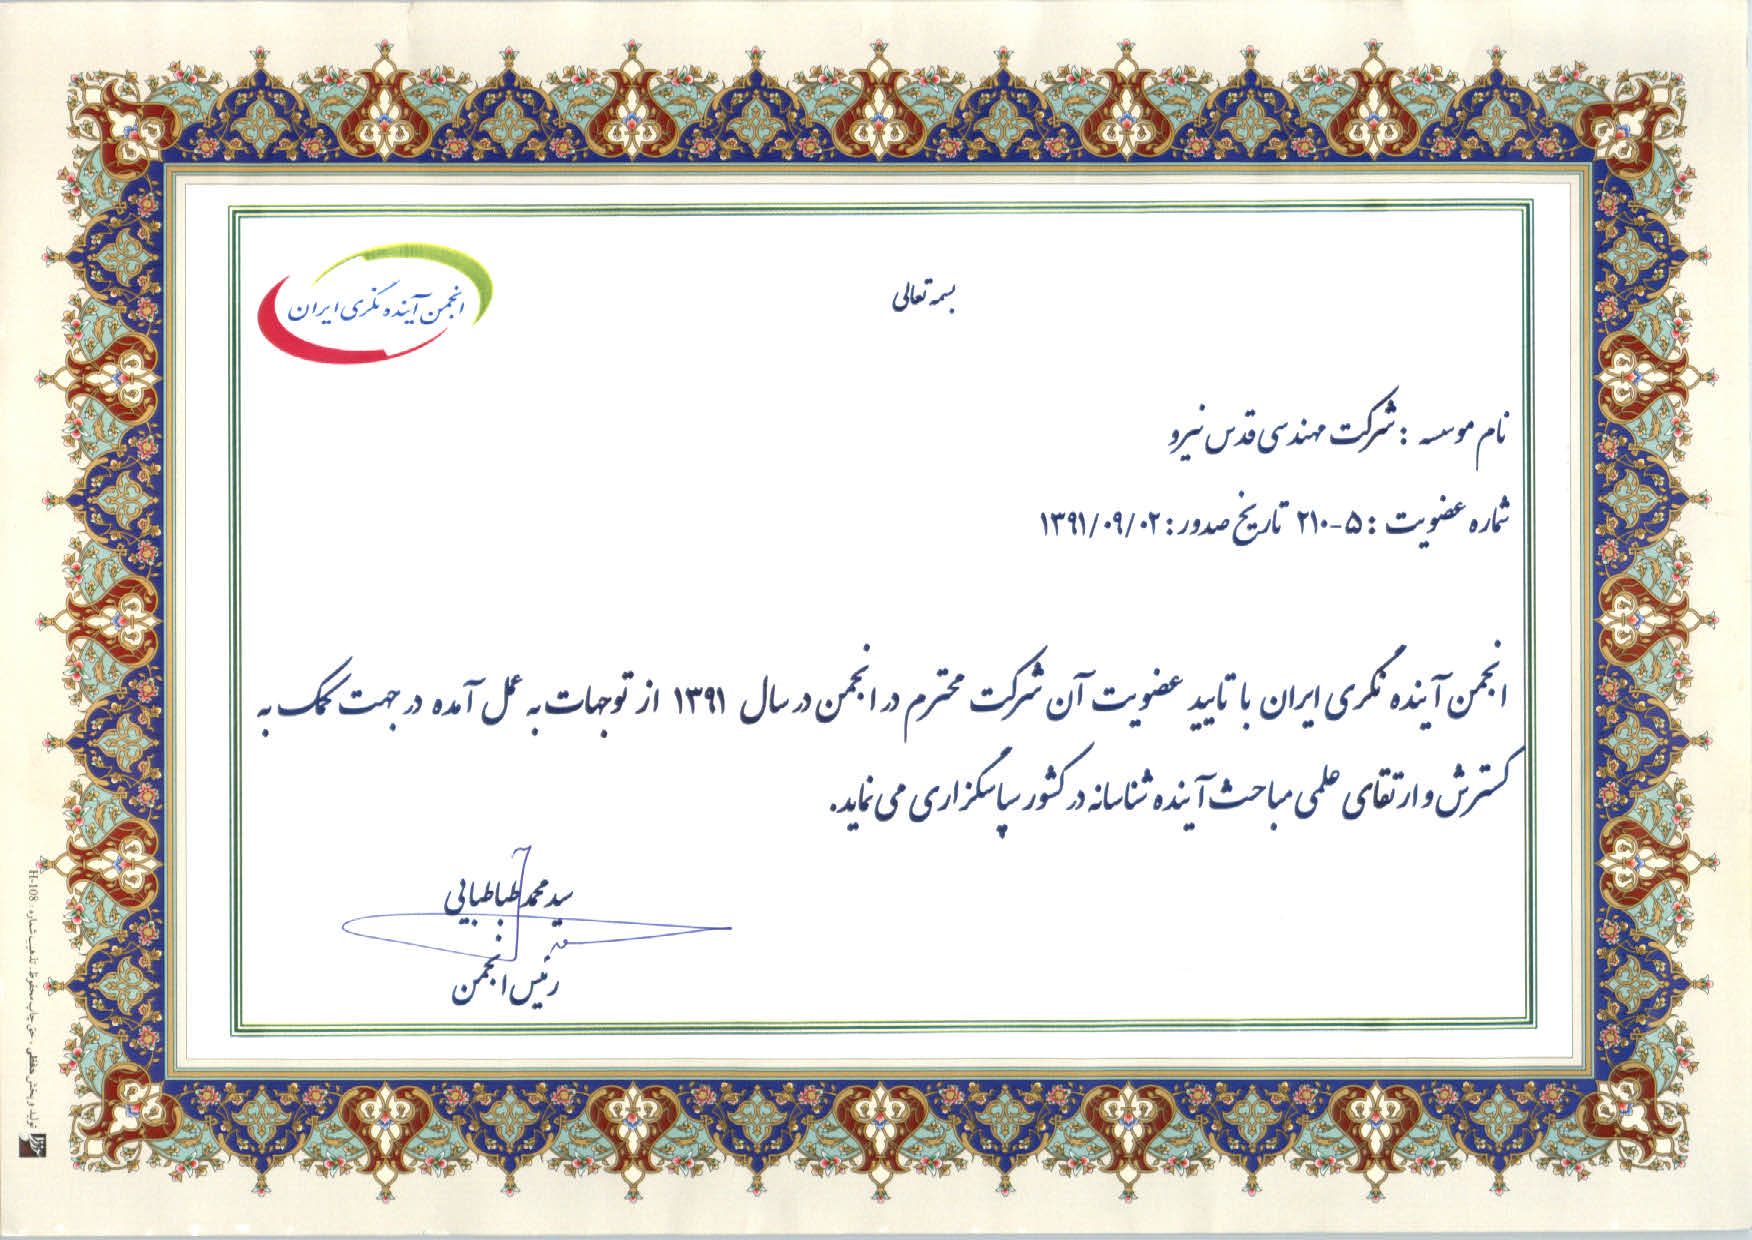 بسمه تعالی
انجمن آینده نگری ایران
نام موسسه : شرکت مهندسی قدس نیرو
شماره عضویت : ۵-۲۱۰ تاریخ صدور : ۱۳۹۱/۰۹/۰۲
انجمن آینده نگری ایران با تایید عضویت آن شرکت محترم در انجمن در سال ۱۳۹۱ از توجهات به عمل آمده در جهت کمک به
گسترش و ارتقای علمی مباحث آینده شناسانه در کشور سپاسگزاری می نماید.
سید محمد طباطبایی
رئیس انجمن
تولید و پخش حقیقی . حق چاپ محفوظ. تذهیب شماره : H-108